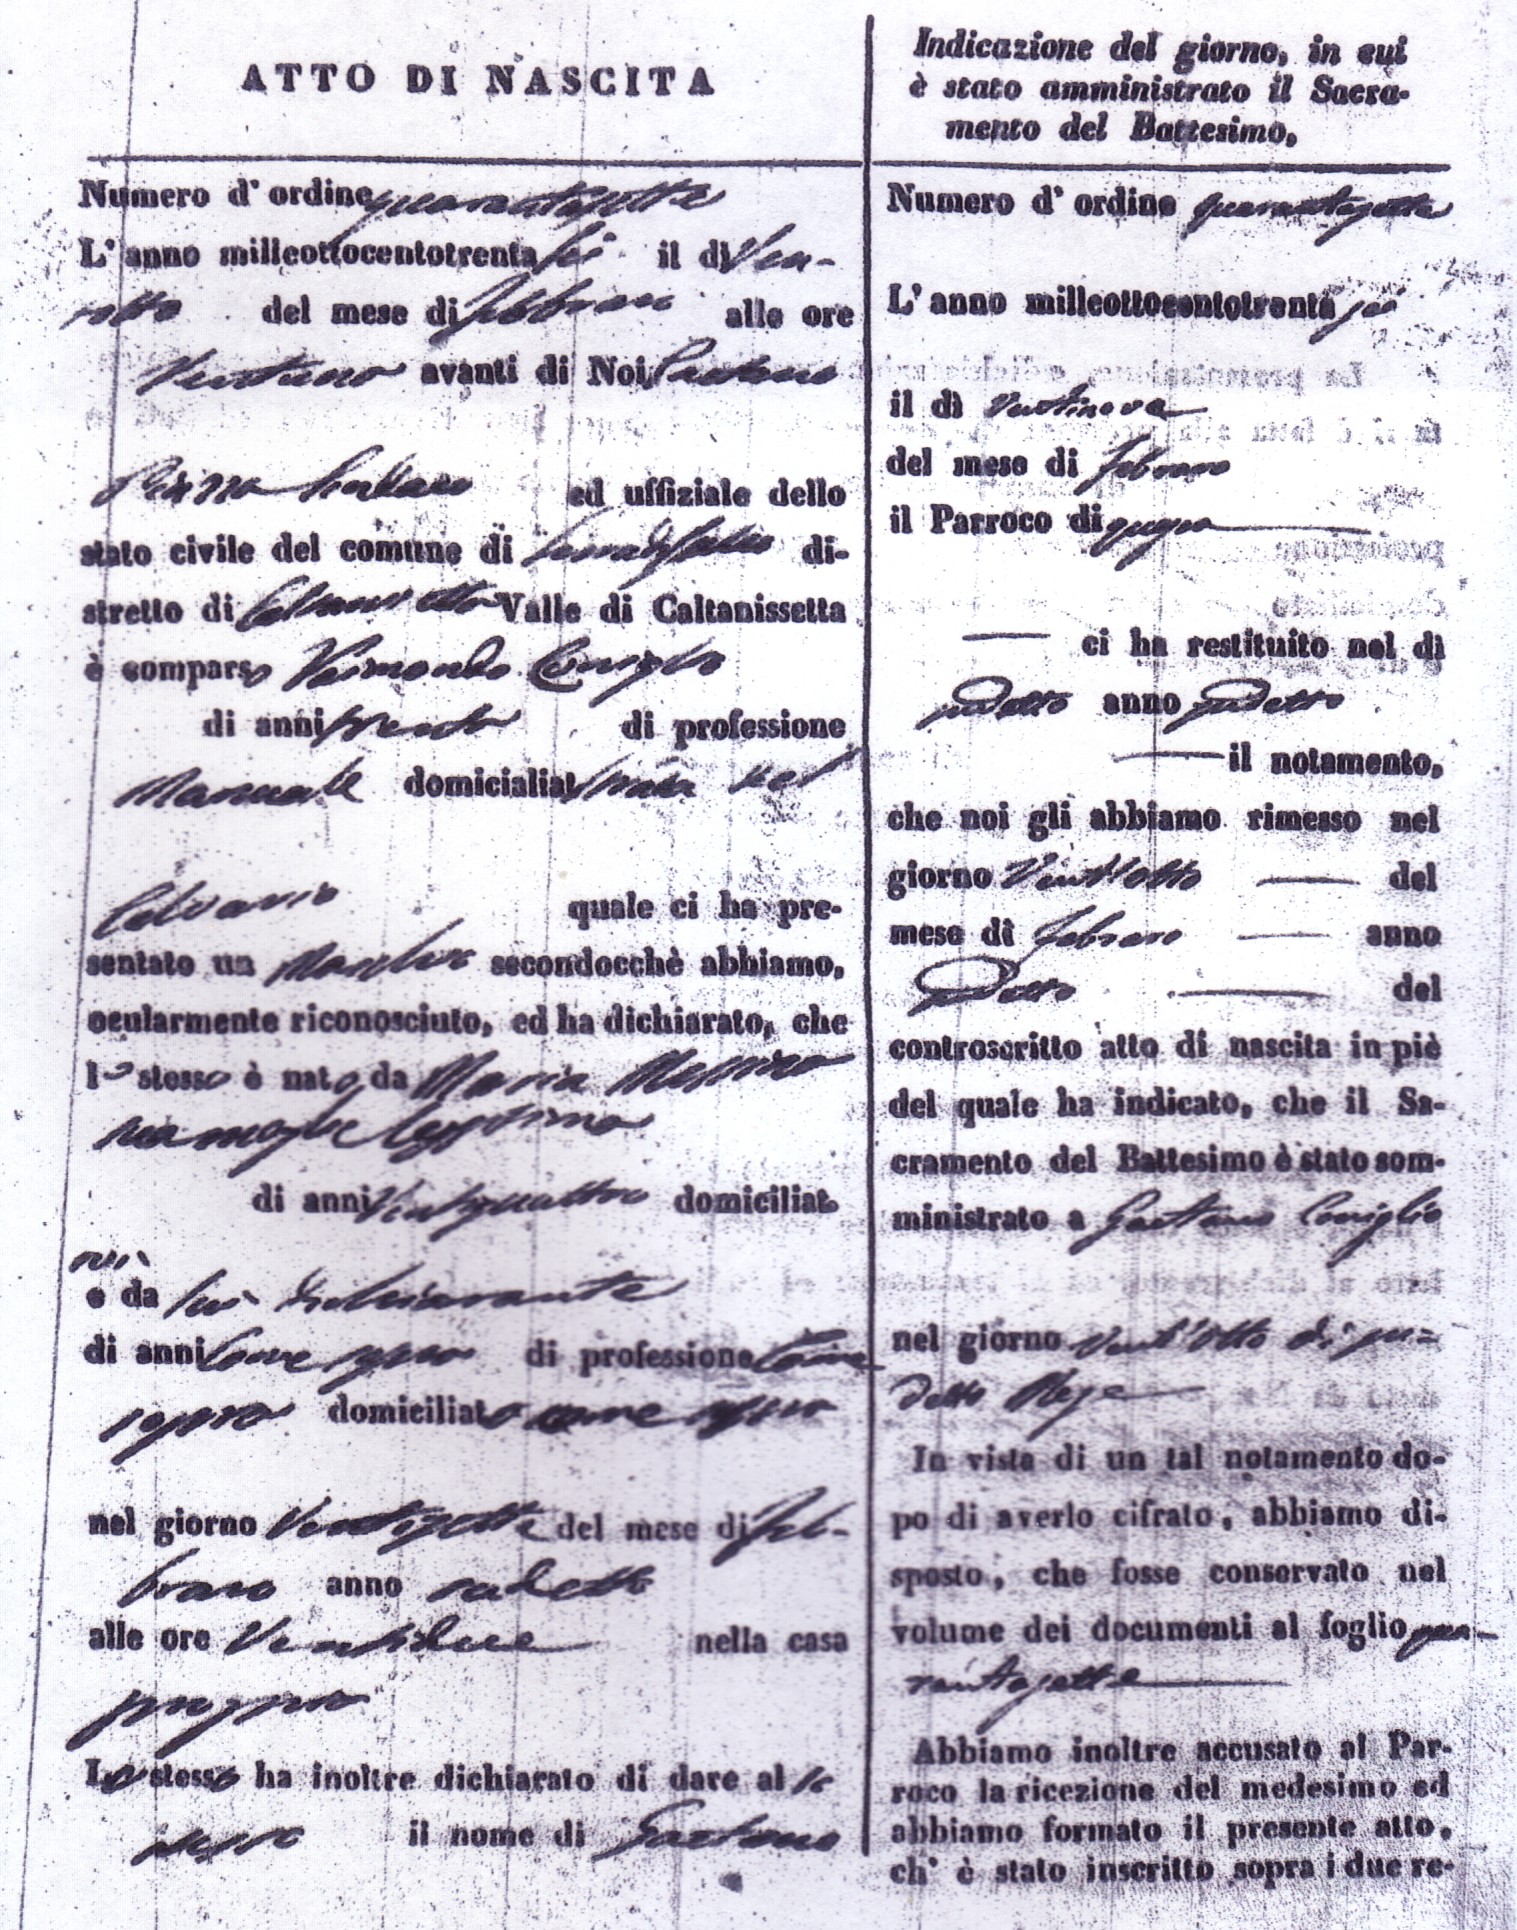 ATTO DI NASCITA
Numero d' ordine quarantasette
L' anno milleottocentotrenta sei il dì Ven-
totto del mese di Febbraro alle ore
Ventuno avanti di Noi Gaetano
Piazza Sindaco ed uffiziale dello
stato civile del comune di Serradifalco di-
stretto di Caltanissetta Valle di Caltanissetta
è comparso Raimondo Coniglio
di anni trenta di professione
Manuale domicialiat strada del
Calvario quale ci ha pre-
sentato un Maschio secondocchè abbiamo,
ocularmente riconosciuto, ed ha dichiarato, che
lo stesso è nato da Maria Messina
sua moglie legittima
di anni Ventiquattro domiciliat
ivi
e da lui dichiarante
di anni come sopra di professione come
sopra domiciliato come sopra
nel giorno Ventisette del mese di Feb-
braro anno sudetto
alle ore Ventidue nella casa
propria
Lo stesso ha inoltre dichiarato di dare al lo
stesso il nome di Gaetano
Indicazione del giorno, in cui
è stato amministrato il Sacra-
mento del Battesimo,
Numero d' ordine quarantasette
L' anno milleottocentotrenta sei
il dì Ventinove
del mese di Febraro
il Parroco di questa
ci ha restituito nel dì
sudetto anno sudetto
il notamento,
che noi gli abbiamo rimesso nel
giorno Vent'otto del
mese di Febraro anno
sudetto del
controscritto atto di nascita in piè
del quale ha indicato, che il Sa-
cramento del Battesimo è stato som-
ministrato a Gaetano Coniglio
nel giorno Vent'otto di su-
detto Mese
In vista di un tal notamento do-
po di averlo cifrato, abbiamo di-
sposto, che fosse conservato nel
volume dei documenti al foglio qua-
rantasette
Abbiamo inoltre accusato al Par-
roco la ricezione del medesimo ed
abbiamo formato il presente atto,
ch' è stato inscritto sopra i due re-